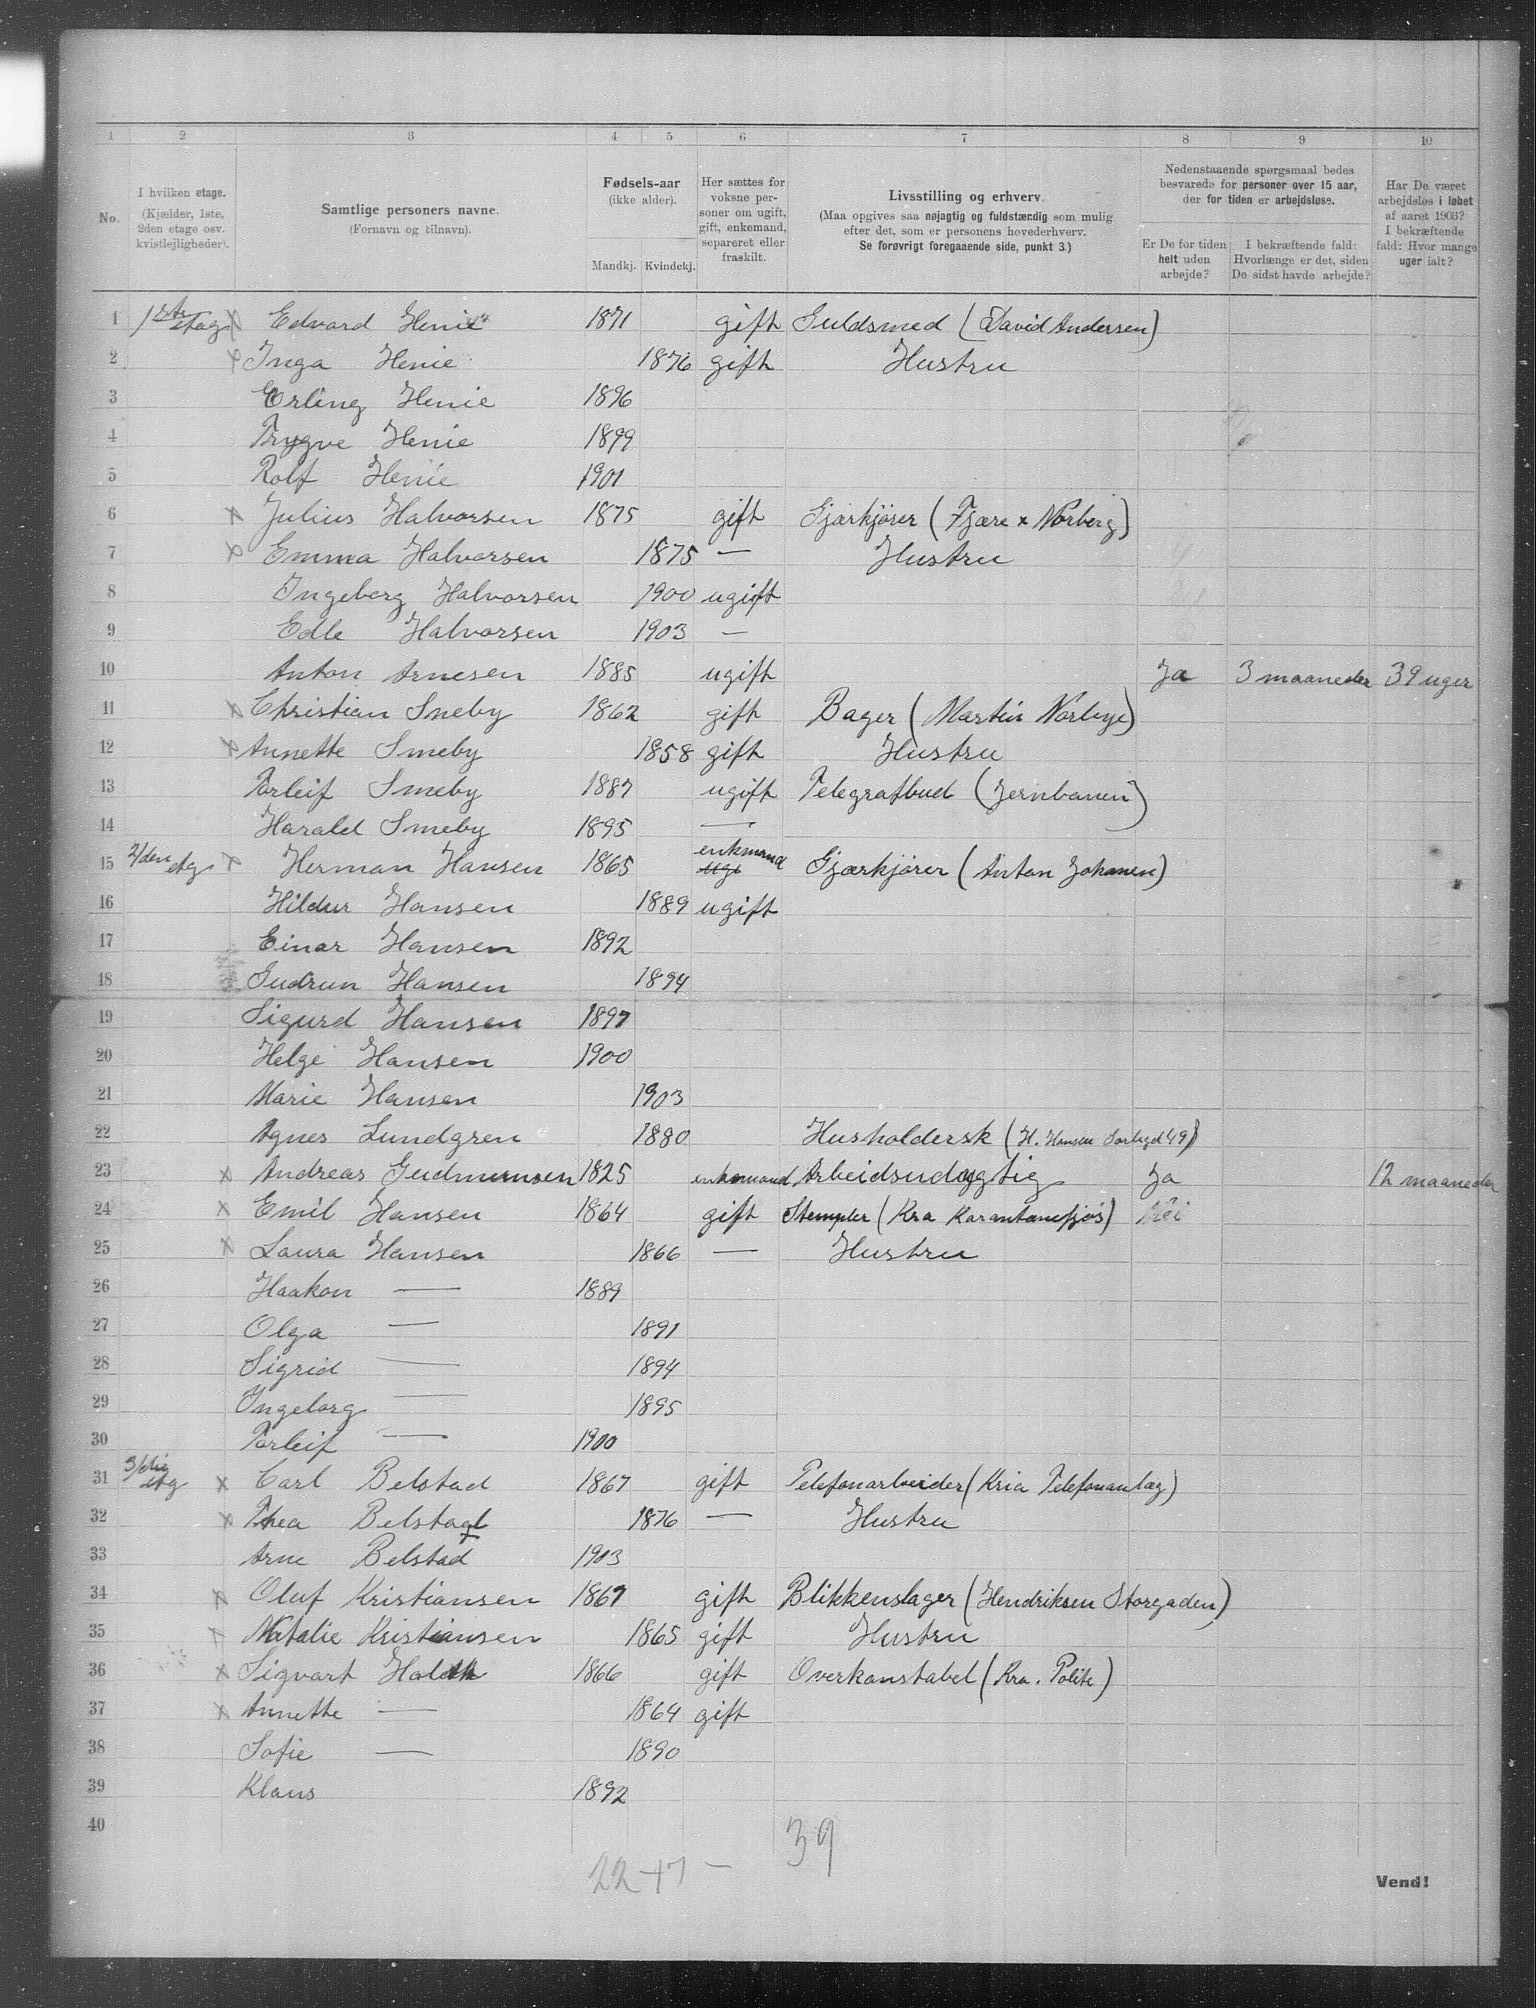 1 2 3 4 5 6 7 8 9 10
No.
I hvilken etage.
(Kjælder, 1ste,
2den etage osv.
kvistlejligheder).
Samtlige personers navne.
(Fornavn og tilnavn).
Fødsels-aar
(ikke alder).
Mandkj. Kvindekj.
Her sættes for
voksne per-
soner om ugift,
gift, enkemand,
separeret eller
fraskilt.
Livsstilling og erhverv.
(Maa opgives saa nøjagtig og fuldstændig som mulig
efter det, som er personens hovederhverv.
Se forøvrigt foregaaende side, punkt 3.)
Nedenstaaende spørgsmaal bedes
besvarede for personer over 15 aar,
der for tiden er arbejdsløse.
Er De for tiden
helt uden
arbejde?
I bekræftende fald:
Hvorlænge er det, siden
De sidst havde arbejde?
Har De været
arbejdsløs i løbet
af aaret 1903?
I bekræftende
fald: Hvor mange
uger ialt?
1 1ste etag x Edvard Henie 1871 gift Guldsmed (David Andersen)
2 x Inga Henie 1876 gift Hustru
3 Erling Henie 1896
4 Trygve Henie 1899
5 Rolf Henie 1901
6 x Julius Halvorsen 1875 gift Gjærkjører (Fjære x Norberg)
7 x Emma Halvorsen 1875 — Hustru
8 Ingeborg Halvorsen 1900 ugift
9 Edle Halvorsen 1903 —
10 Anton Arnesen 1885 ugift Ja 3 maaneder 39 uger
11 x Christian Sneby 1862 gift Bager (Martin Norbye)
12 x Annette Smeby 1858 gift Hustru
13 Torleif Smeby 1887 ugift Telegrafbud (Jernbanen)
14 Harald Smeby 1895 —
15 2/den etg x Herman Hansen 1865 enkmand ugi Gjærkjører (Anton Johanen)
16 Hildur Hansen 1889 ugift
17 Einar Hansen 1892
18 Gudrun Hansen 1894
19 Sigurd Hansen 1897
20 Helge Hansen 1900
21 Marie Hansen 1903
22 Agnes Lundgren 1880 Husholdersk (H. Hansen 49)
23 x Andreas Gudmunsen 1825 enkemand Arbeidsudygtig Ja 12 maaneder
24 x Emil Hansen 1864 gift Stempler (Kra Karantænefjøs) Nei
25 x Laura Hansen 1866 — Hustru
26 Haakon — 1889
27 Olga — 1891
28 Sigrid — 1894
29 Ingeborg — 1895
30 Torleif — 1900
31 3/die etg x Carl Belstad 1867 gift Telefonarbeider (Kria Telefonanlæg)
32 x Thea Belstad 1876 — Hustru
33 Arne Belstad 1903
34 x Oluf Kristiansen 1867 gift Blikkenslager (Hendriksen Storgaden)
35 x Natalie Kristiansen 1865 gift Hustru
36 x Sigvart Holth 1866 gift Overkonstabel (Kra. Politi)
37 x Annette — 1864 gift
38 Sofie — 1890
39 Klaus 1892
40
22 + 17 — 39
Vend!